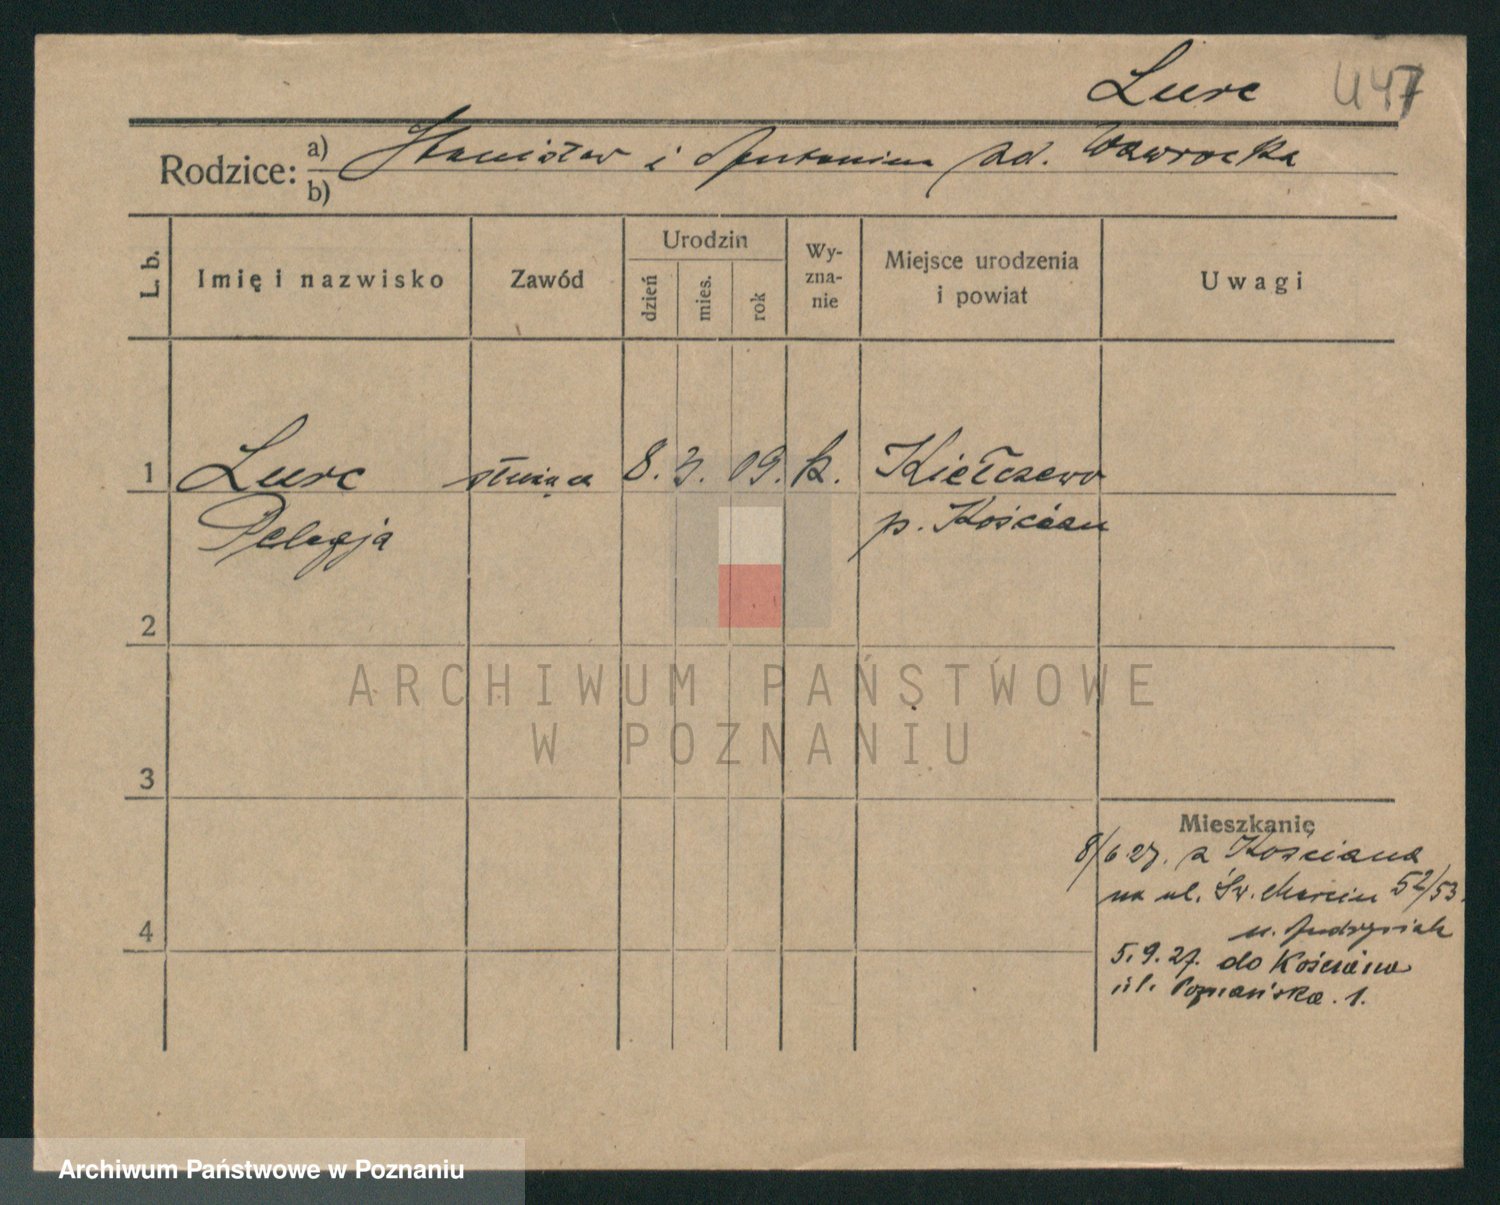 Lurc 447
Rodzice: a) Stanisław i Antonina zd. Wawrocka
b)
L. b. Imię i nazwisko Zawód Urodzin dzień mies. rok Wy-zna-nie Miejsce urodzenia i powiat Uwagi
1 Lurc służąca 8. 3. 09. k. Kiełczewo
Pelagja p. Kościan
2
ARCHIWUM PAŃSTWOWE
W POZNANIU
3
Mieszkanie
8/6 27. z Kościana
na ul. Św. Marcin 52/53.
u. Andrzejak
4
5.9.27. do Kościana
ul. Poznańska. 1.
Archiwum Państwowe w Poznaniu